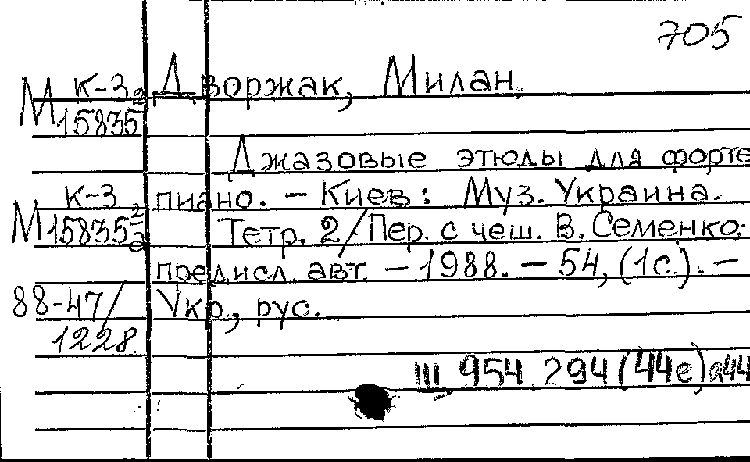 705
К-3 Дворжак, Милан.
М 15835
Джазовые этюды для форте
К-3 пиано. – Киев: Муз. Украина.
М 15835 Тетр. 2/Пер. с чеш. В. Семенко;
предисл. авт. – 1988. – 54, (1с.). –
88-47/ Укр., рус.
1228.
III 954 294 (44е)